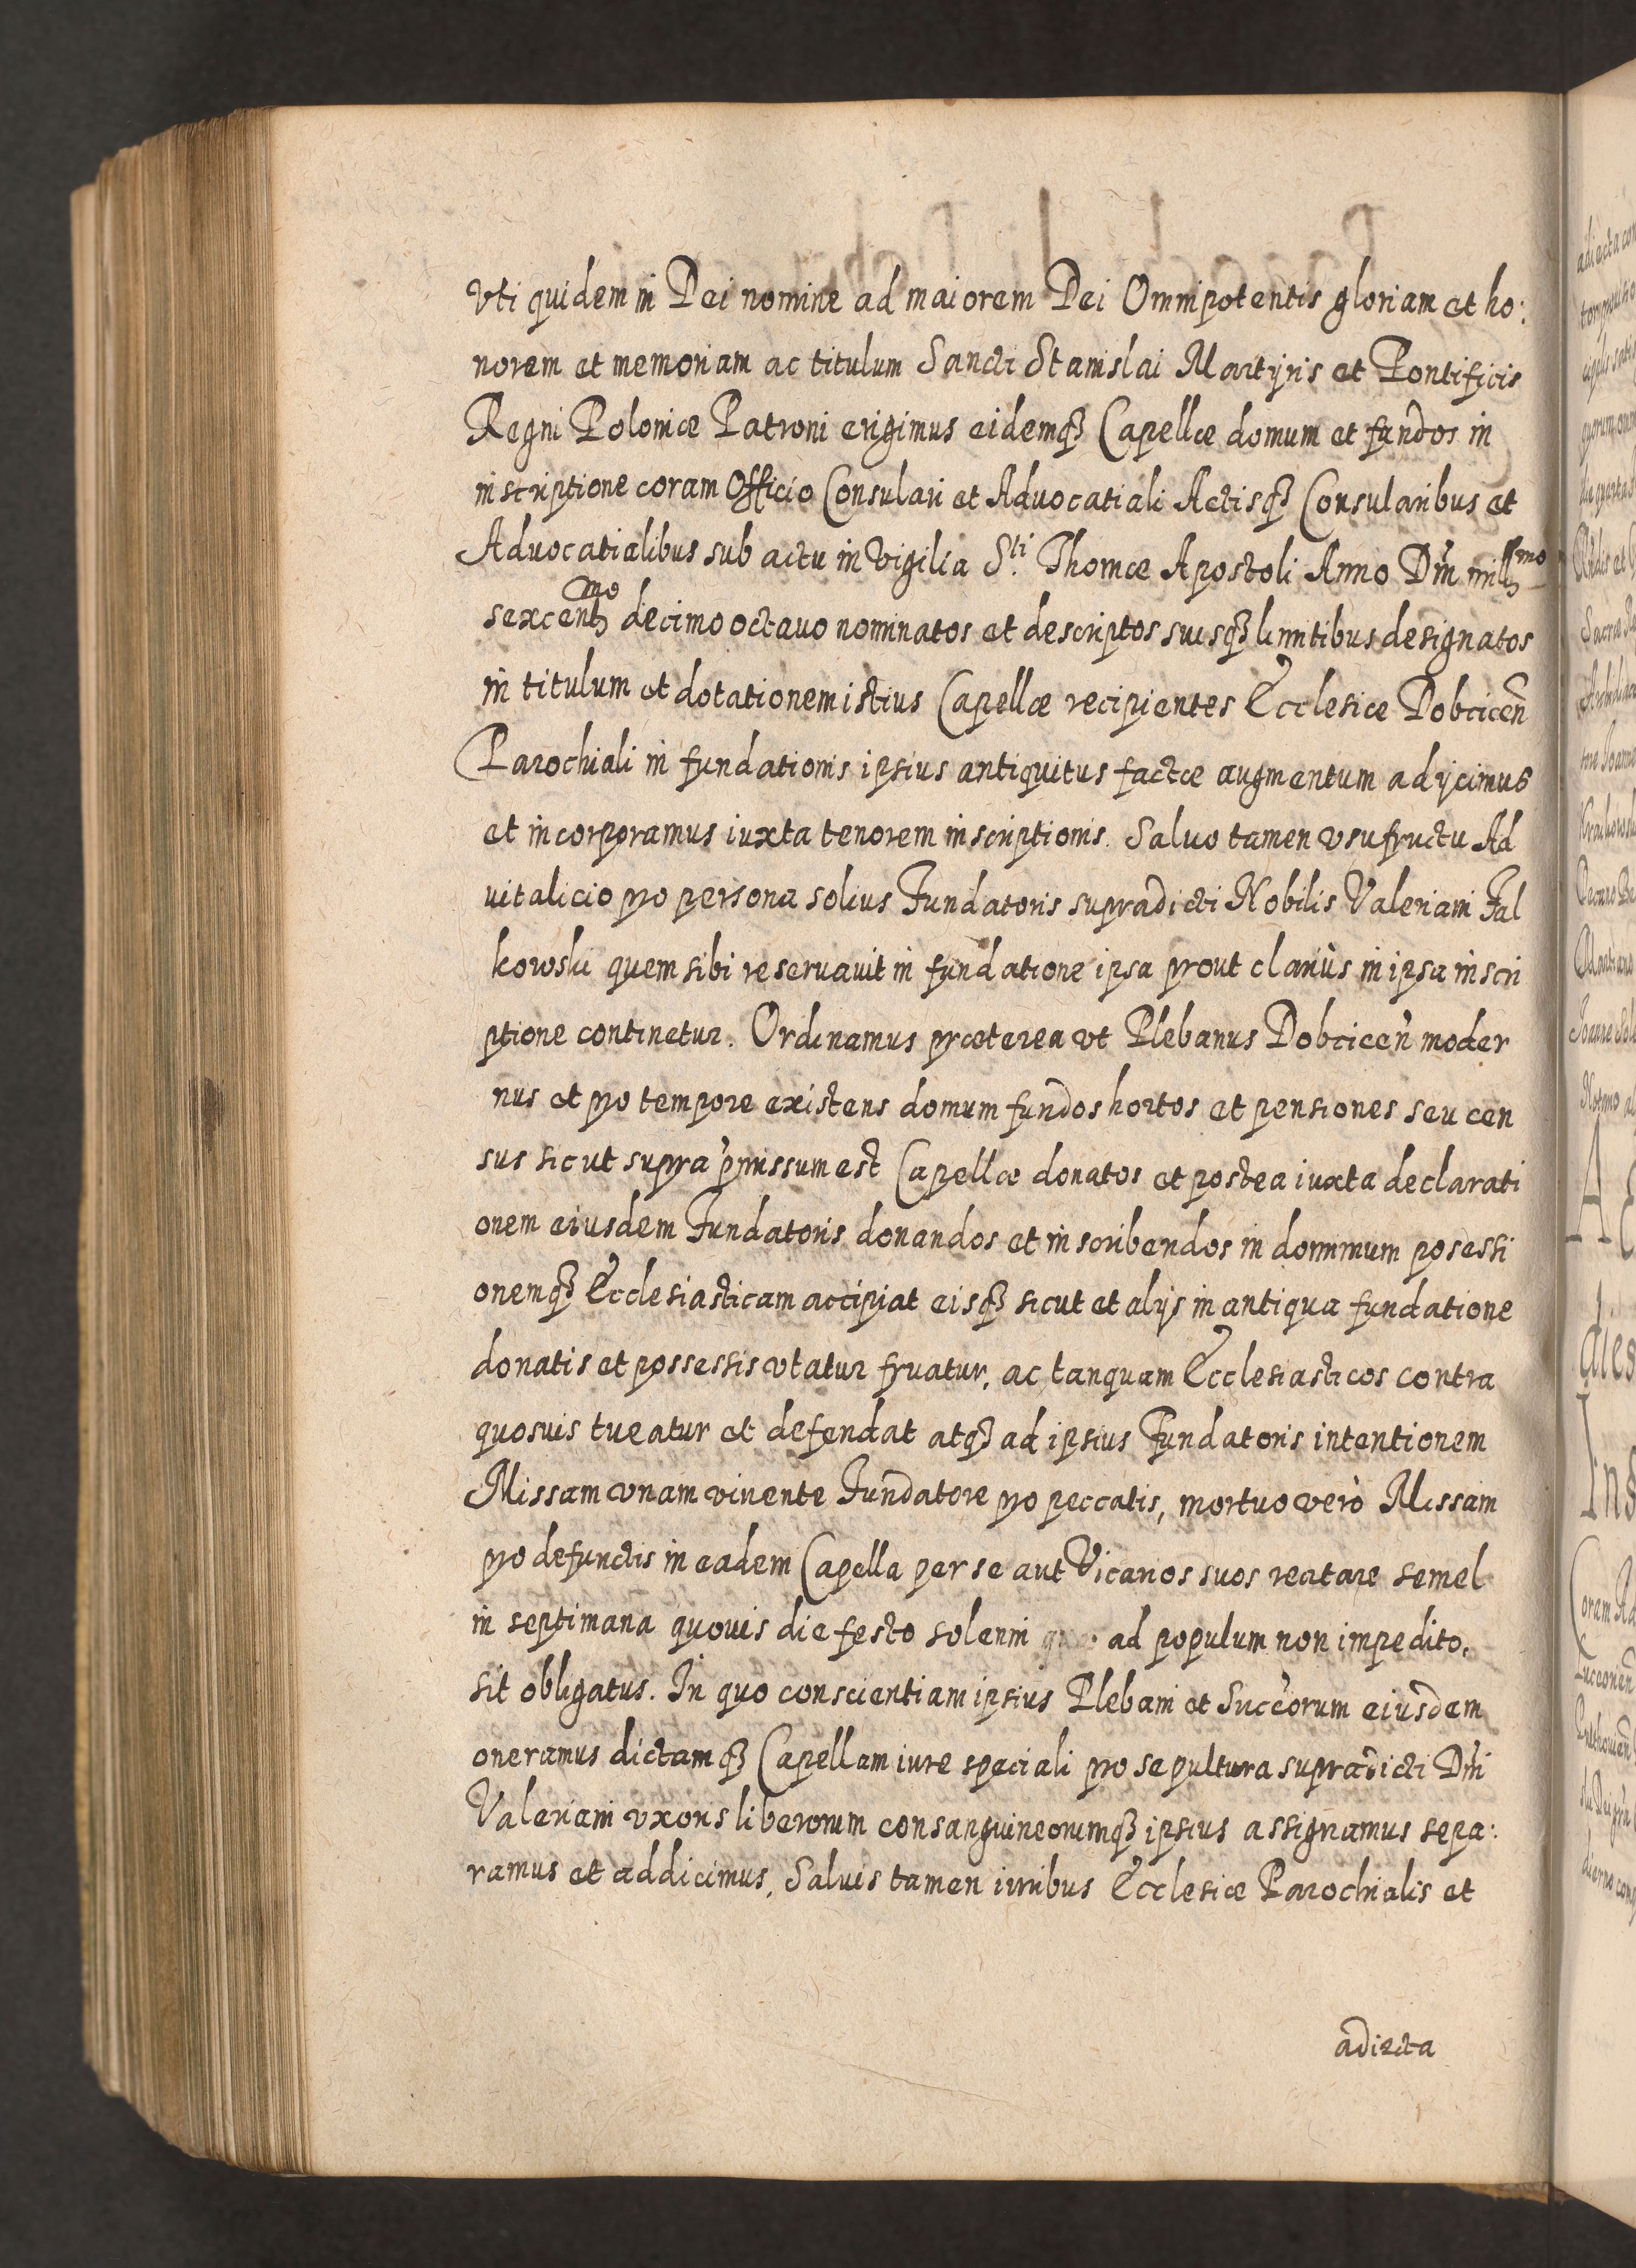 Vti quidem in Dei nomine ad maiorem Dei Omnipotentis gloriam et ho:
norem et memoriam ac titulum Sancti Stanislai Martyris et Pontificis
Regni Poloniæ Patroni erigimus eidemqꝫ Capellæ domum et fundos in
inscriptione coram Officio Consulari et Advocatiali Actisqꝫ Consularibus et
Advocatialibus sub actu in Vigilia Sti. Thomæ Apostoli Anno Dni millmo
sexcentmo decimo octauo nominatos et descriptos suisqꝫ limitibus designatos
in titulum et dotationem istius Capellæ recipientes Ecclesiæ Dobcicen̄
Parochiali in fundationis ipsius antiquitus factæ augmentum adijcimus
et incorporamus iuxta tenorem inscriptionis. Saluo tamen vsufructu Ad
uitalicio pro persona solius Fundatoris supradicti Nobilis Valeriani Fal
kowski quem sibi reseruauit in fundatione ipsa prout clariùs in ipsa inscri
ptione continetur. Ordinamus præterea vt Plebanus Dobcicen̄ moder
nus et pro tempore existens domum fundos hortos et pensiones seu cen
sus sicut supra p̄missum est Capellæ donatos et postea iuxta declarati
onem eiusdem Fundatoris donandos et inscribendos in dominium posessi
onemqꝫ Ecclesiasticam accipiat eisqꝫ sicut et alijs in antiqua fundatione
donatis et possessis vtatur fruatur, ac tanquam Ecclesiasticos contra
quosuis tueatur et defendat atqꝫ ad ipsius Fundatoris intentionem
Missam vnam viuente Fundatore pro peccatis, mortuo verò Missam
pro defunctis in eadem Capella per se aut Vicarios suos recitare semel
in septimana quouis die festo solenni ad populum non impedito.
sit obligatus. In quo conscientiam ipsius Plebani et Succ̄orum eiusdem
oneramus dictamqꝫ Capellam iure speciali pro sepultura supradicti Dn̄i
Valeriani vxoris liberorum consanguineorumqꝫ ipsius assignamus sepa:
ramus et addicimus, Saluis tamen iuribus Ecclesiæ Parochialis et
adiecta